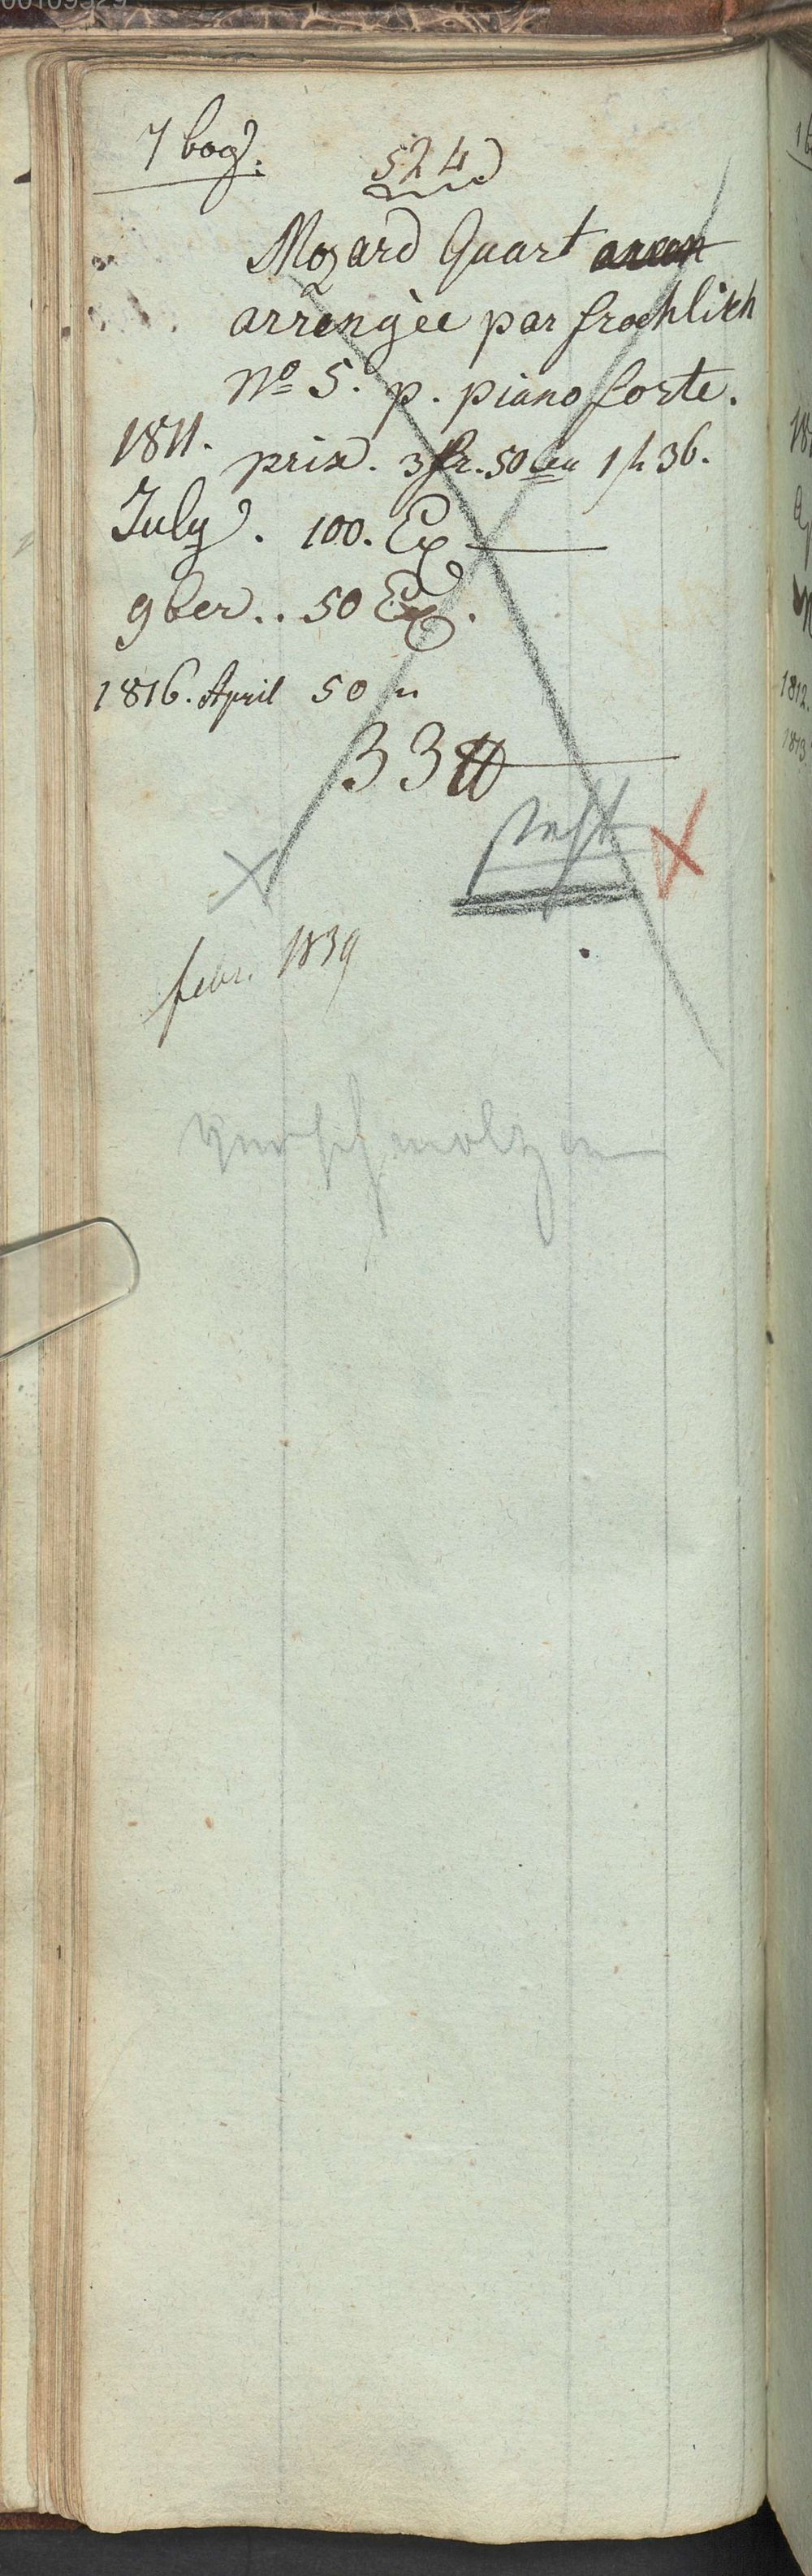 7 bog.
524
Mozard Quart
arrengèe par froehlich
No 5. p. piano forte.
1811.
prix. 3 fr. 50 1 f 36.
July. 100. Ex
9ber.. 50 Ex.
1816. April 50 "
33 ℔
steht
febr. 1839
verschmolzen